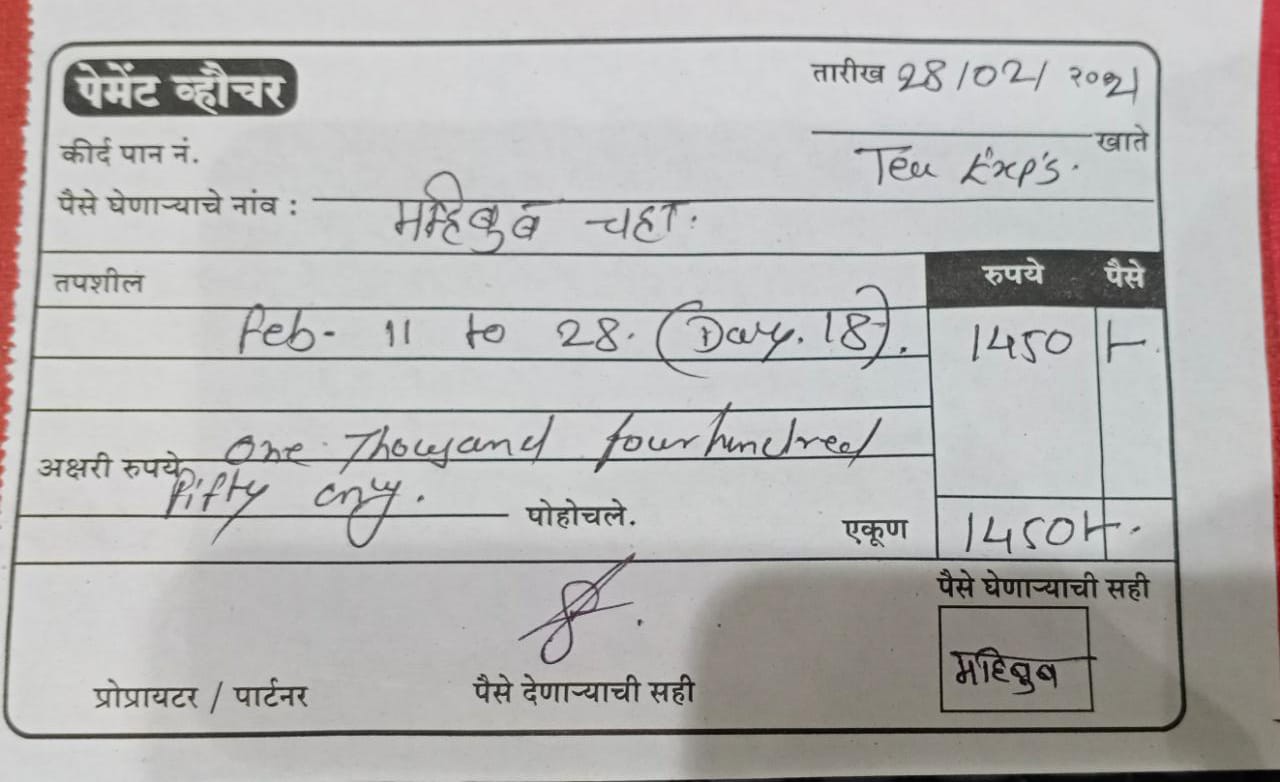 पेमेंट व्हौचर
तारीख 28/02/ २०२१
कीर्द पान नं.
खाते
Tea Exp's.
पैसे घेणाऱ्याचे नांव : महिबुब चहा.
तपशील रुपये पैसे
Feb- 11 to 28. (Day. 18). 1450 /-
अक्षरी रुपये One Thousand four hundred
fifty only. पोहोचले.
एकूण 1450/-.
पैसे घेणाऱ्याची सही
महिबुब
प्रोप्रायटर / पार्टनर पैसे देणाऱ्याची सही